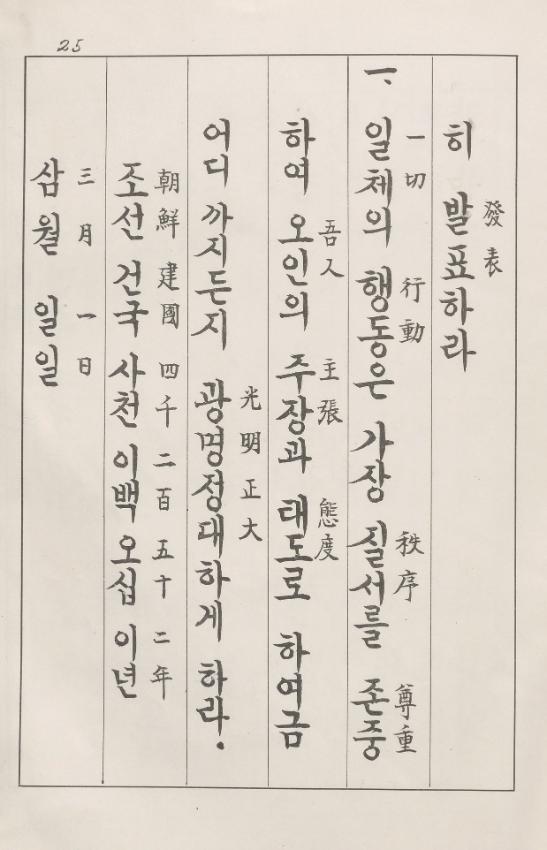 25
히 발표하라
發表
一、일체의 행동은 가장 질서를 존중
一切 行動 秩序 尊重
하여 오인의 주장과 태도로 하여금
吾人 主張 態度
어디 까지든지 광명정대하게 하라.
光明正大
조선 건국 사천 이백 오십 이년
朝鮮 建國 四千 二百 五十 二年
삼월 일일
三月 一日